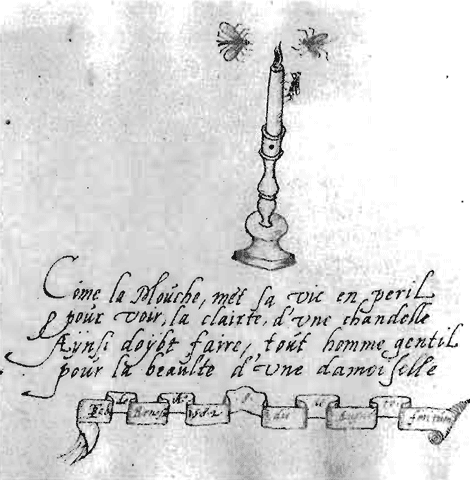 Come la Mouche, mét sa vie en peril
pour voir, la clairte, d'une chandelle
Aÿnsi doÿbt faire, tout homme gentil
pour la beaulte d'une damoiselle